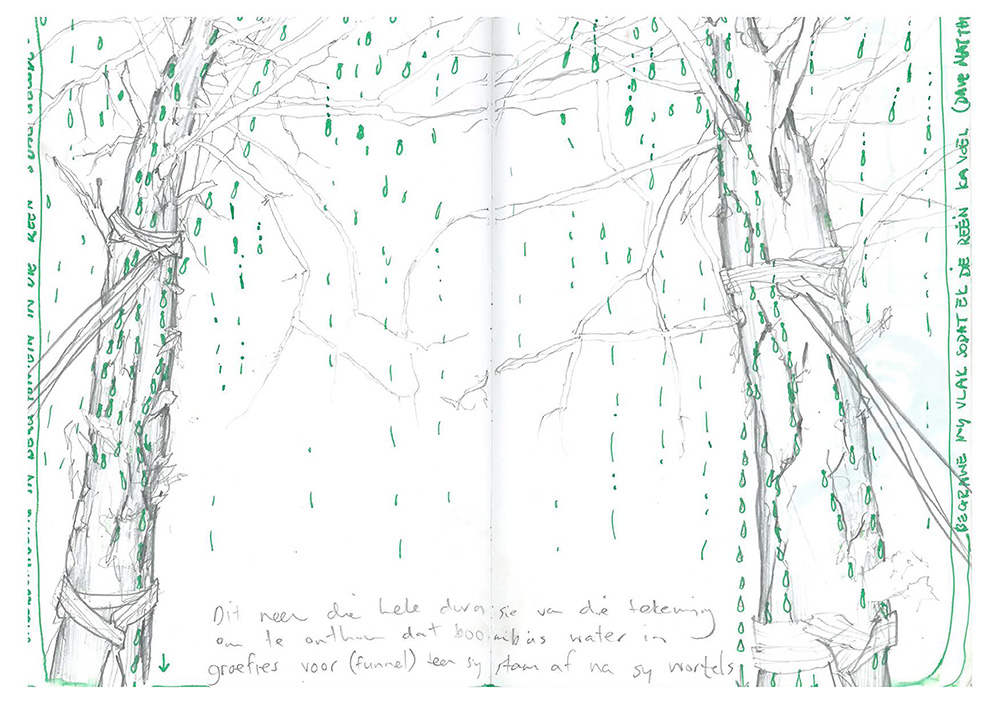 BEGRAWE MY VLAK SODAT EK DIE REËN KA VOEL (DAVE MATTH
IN DIE REËN
Dit neem die hele durasie va die tekening
om te onthou dat boombas water in
groefies voor (funnel) teen sy stam af na sy wortels